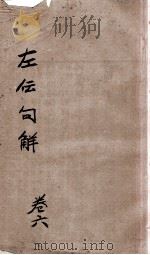 左伝句解
卷六
mtoou.info